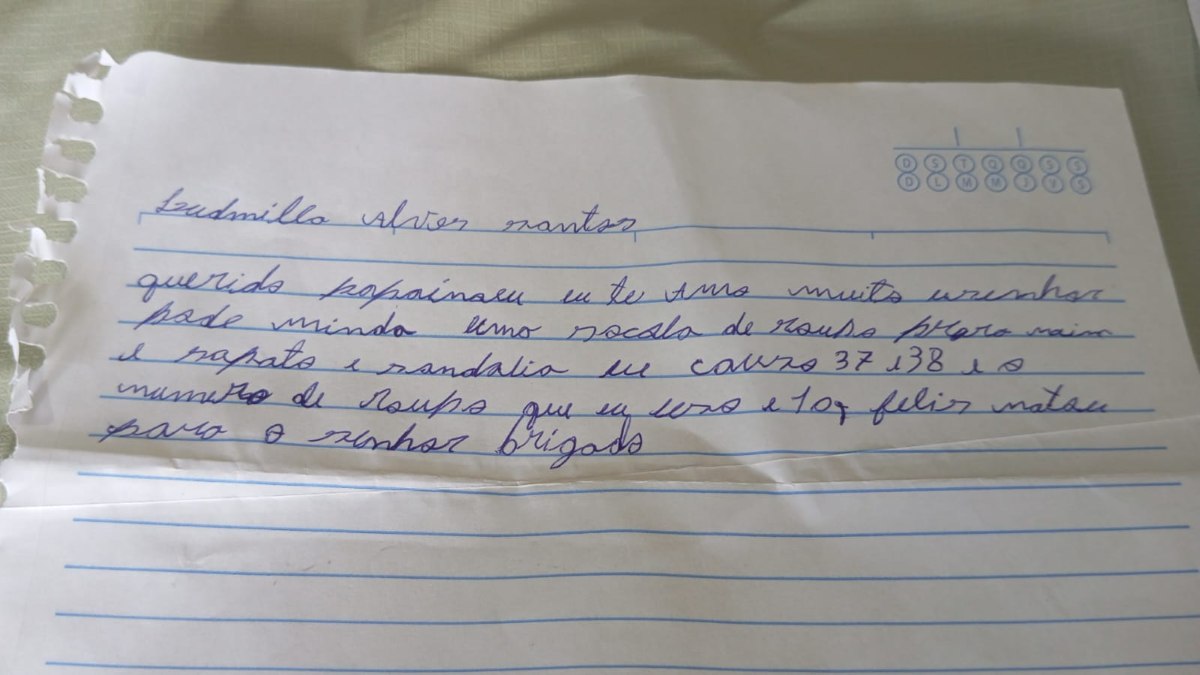 D S T Q Q S S
D L M M J V S
Ludmilla Alves santos
querido papainaeu eu te amo muito usenhor
pode minda umo sacola de roupa praro mim
e sapato e sandalia eu causo 37 e 38 e o
numero de roupa que eu uso e 10, felis natau
para o senhor brigado